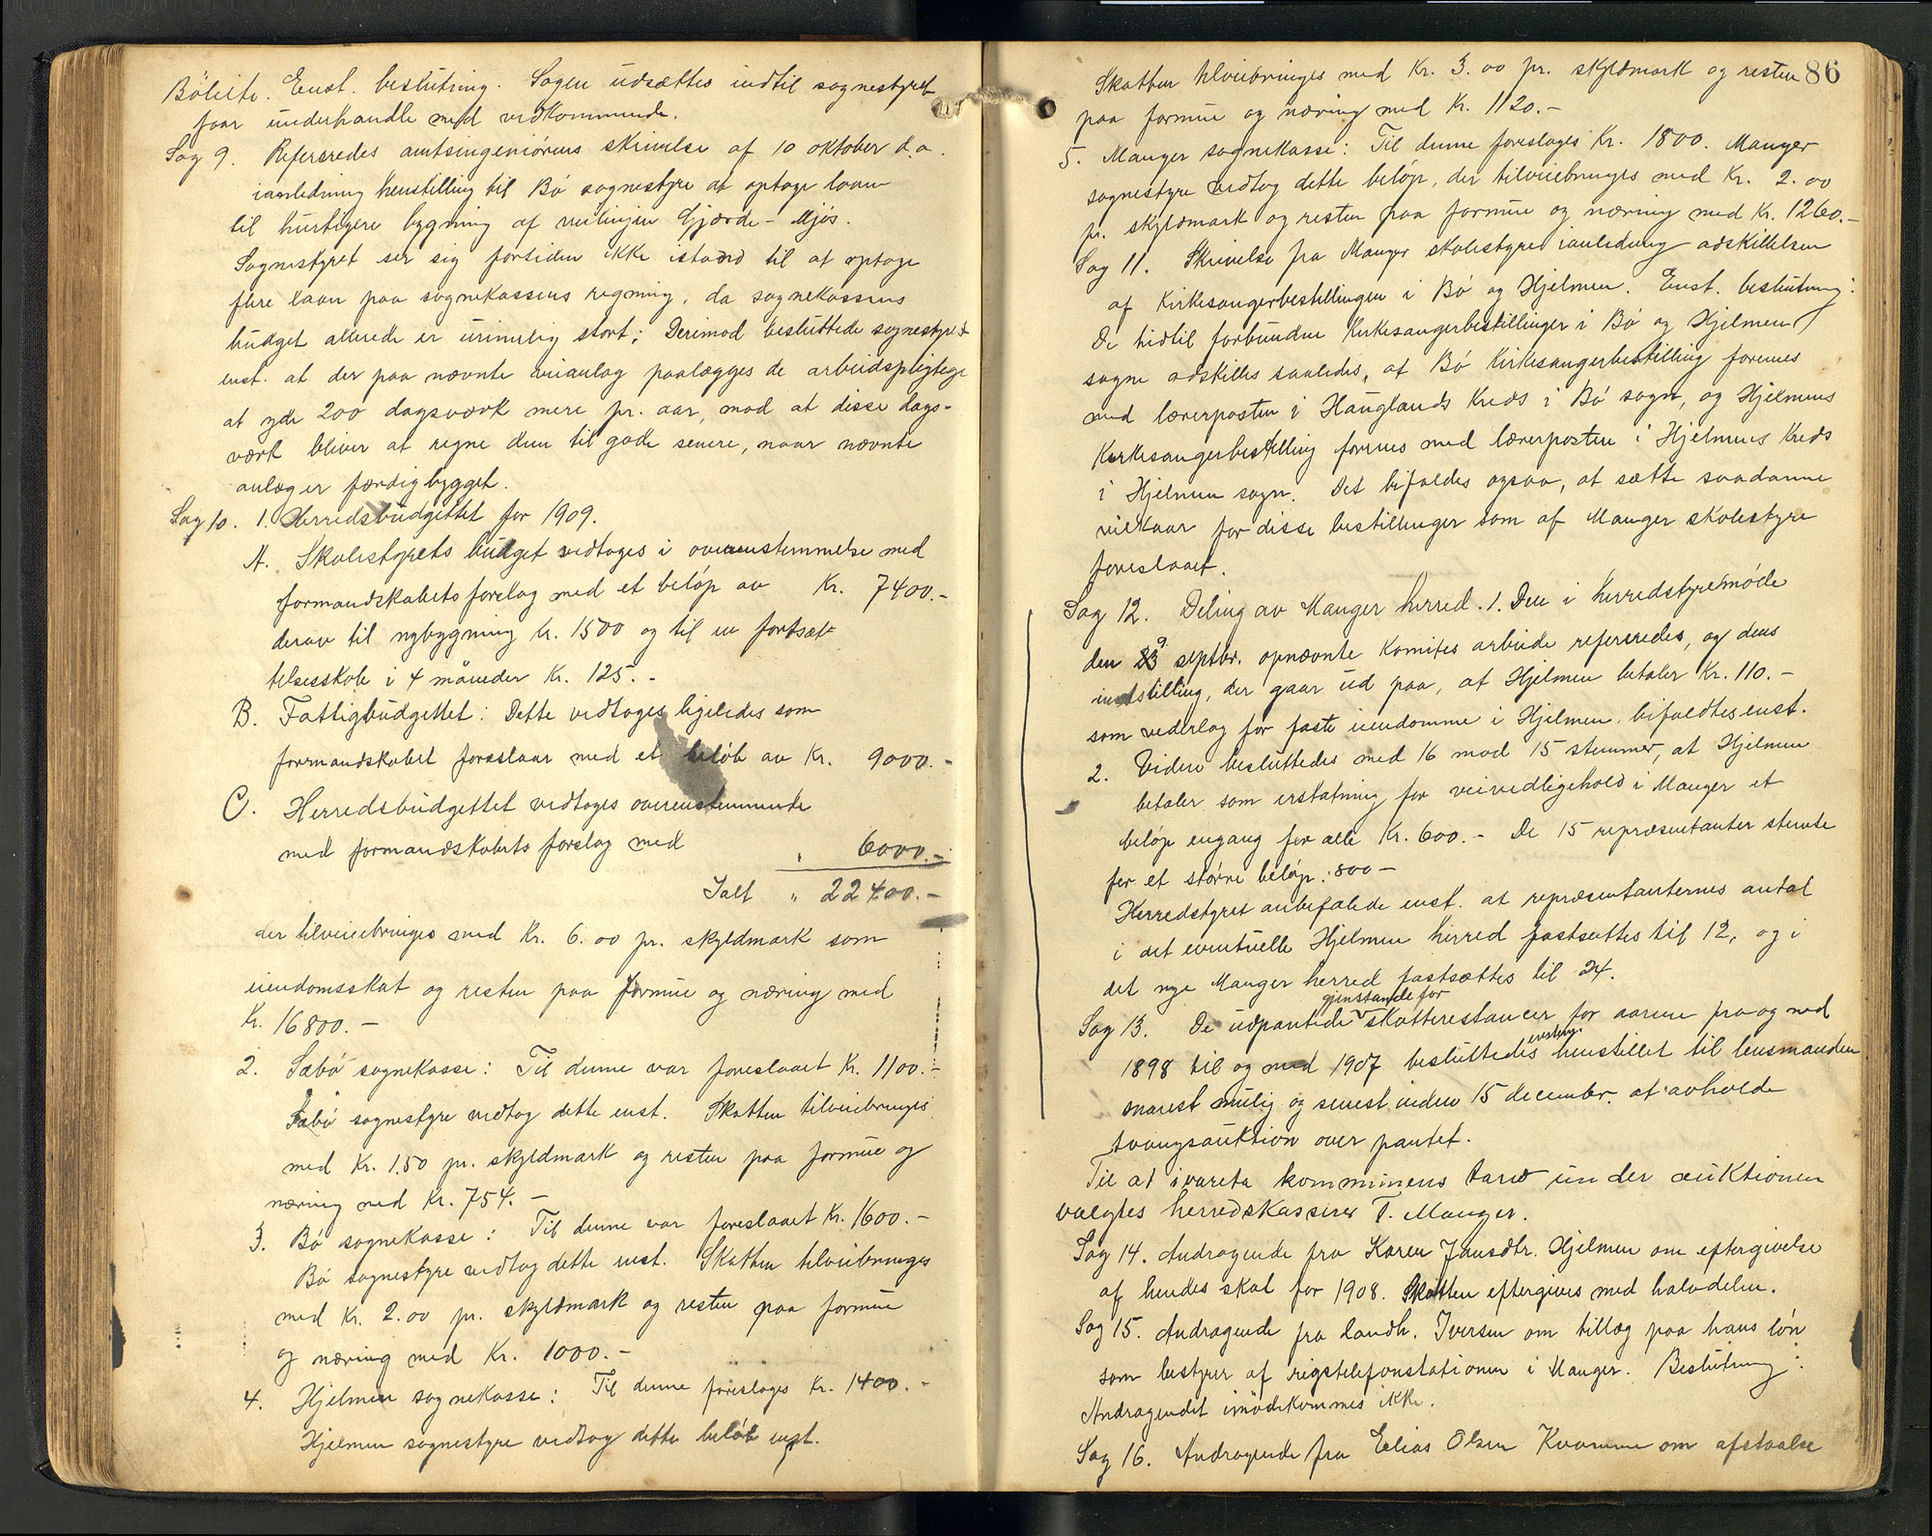 Böleite. Enst. beslutning. Sagen udsættes indtil sognestyret
faar underhandle med vedkommende.
Sag 9. Refereredes amtsingeniörens skrivelse af 10 oktober d.a.
ianledning henstilling til Bö sognestyre at optage laan
til hurtigere bygning af veilinjen Gjærde - Mjös.
Sognestyret ser sig fortiden ikke istand til at optage
flere laan paa sognekassens regning, da sognekassens
budget allerede er urimelig stort; Derimod besluttede sognestyret
enst. at der paa nævnte veianlæg paalægges de arbeidspligtige
at yde 200 dagsværk mere pr. aar, mod at disse dags-
værk bliver at regne dem til gode senere, naar nævnte
anlæg er færdigbygget.
Sag 10. 1. Herredsbudgettet for 1909.
A. Skolestyrets budget vedtoges i overensstemmelse med
formandskabets forslag med et belöp av Kr. 7400.-
derav til nybygning Kr. 1500 og til en fortsæt-
telsesskole i 4 måneder Kr. 125.-
B. Fattigbudgettet: Dette vedtoges ligeledes som
formandskabet foreslaar med et belöb av Kr. 9000.-
C. Herredsbudgettet vedtoges overensstemmende
med formandskabets forslag med " 6000.-
Ialt " 22400.-
der tilveiebringes med Kr. 6.00 pr. skyldmark som
eiendomsskat og resten paa formue og næring med
Kr. 16800.-
2. Sæbö sognekasse: Til denne var foreslaaet Kr. 1100.-
Sæbö sognestyre vedtog dette enst. Skatten tilveiebringes
med Kr. 1.50 pr. skyldmark og resten paa formue og
næring med Kr. 754.-
3. Bö sognekasse: Til denne var foreslaaet Kr. 1600.-
Bö sognestyre vedtog dette enst. Skatten tilveiebringes
med Kr. 2.00 pr. skyldmark og resten paa formue
og næring med Kr. 1000.-
4. Hjelmen sognekasse: Til denne foreslages Kr. 1400.-
Hjelmen sognestyre vedtog dette belöb enst.
86
Skatten tilveiebringes med Kr. 3.00 pr. skyldmark og resten
paa formue og næring med Kr. 1120.-
5. Manger sognekasse: Til denne foreslages Kr. 1800. Manger
sognestyre vedtog dette belöp, der tilveiebringes med Kr. 2.00
pr. skyldmark og resten paa formue og næring med Kr. 1260.-
Sag 11. Skrivelse fra Manger skolestyre ianledning adskillelsen
af Kirkesangerbestillingen i Bö og Hjelmen. Enst. beslutning:
De hidtil forbundne Kirkesangerbestillinger i Bö og Hjelmen
sogne adskilles saaledes, at Bö Kirkesangerbestilling forenes
med lærerposten i Hauglands Kreds i Bö sogn, og Hjelmens
Kirkesangerbestilling forenes med lærerposten i Hjelmens Kreds
i Hjelmen sogn. Det bifaldes ogsaa, at sætte saadanne
vilkaar for disse bestillinger som af Manger skolestyre
foreslaaet.
Sag 12. Deling av Manger herred. 1. Den i herredstyremöde
den 9 septbr. opnævnte Komites arbeide refereredes, og dens
indstilling, der gaar ud paa, at Hjelmen betaler Kr. 110.-
som vederlag for faste eiendomme i Hjelmen, bifaldtes enst.
2. Videre besluttedes med 16 mod 15 stemmer, at Hjelmen
betaler som erstatning for veivedligehold i Manger et
belöp engang for alle Kr. 600.- De 15 repræsentanter stemte
for et större belöp: 800-
Herredstyret anbefalede enst. at repræsentanternes antal
i det eventuelle Hjelmen herred fastsættes til 12, og i
det nye Manger herred fastsættes til 24.
Sag 13. De udpantede gjenstande for skatterestancer for aarene fra og med
1898 til og med 1907 besluttedes henstillet til lensmanden
snarest mulig og senest inden 15 december at avholde
tvangsauktion over pantet.
Til at ivareta kommunens tarv under auktionen
valgtes herredskasserer T. Manger.
Sag 14. Andragende fra Karen Jansdtr. Hjelmen om eftergivelse
af hendes skat for 1908. Skatten eftergives med halvdelen.
Sag 15. Andragende fra landh. Iversen om tillæg paa hans lön
som bestyrer af rigstelefonstationen i Manger. Beslutning:
Andragendet imödekommes ikke.
Sag 16. Andragende fra Elias Olsen Kvamme om afstaalse